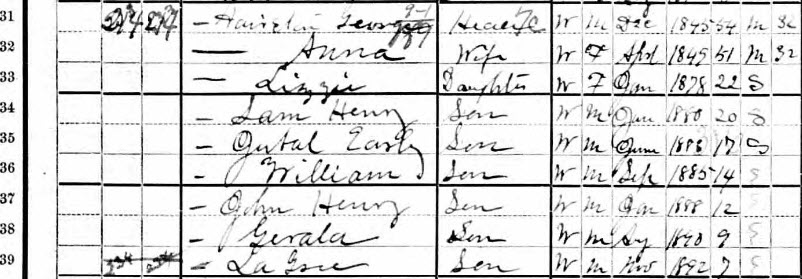 31 George Head W M Dec 1845 54 M 32
32 — Anna Wife W F Apl 1849 51 M 32
33 — Lizzie Daughter W F Jan 1878 22 S
34 — Sam Henry Son W M Jan 1880 20 S
35 — Early Son W M June 17 S
36 — William Son W M Sep 1885 14 S
37 — John Henry Son W M Jan 1888 12 S
38 — Gerald Son W M 1890 9 S
39 — Son W M Nov 1892 7 S